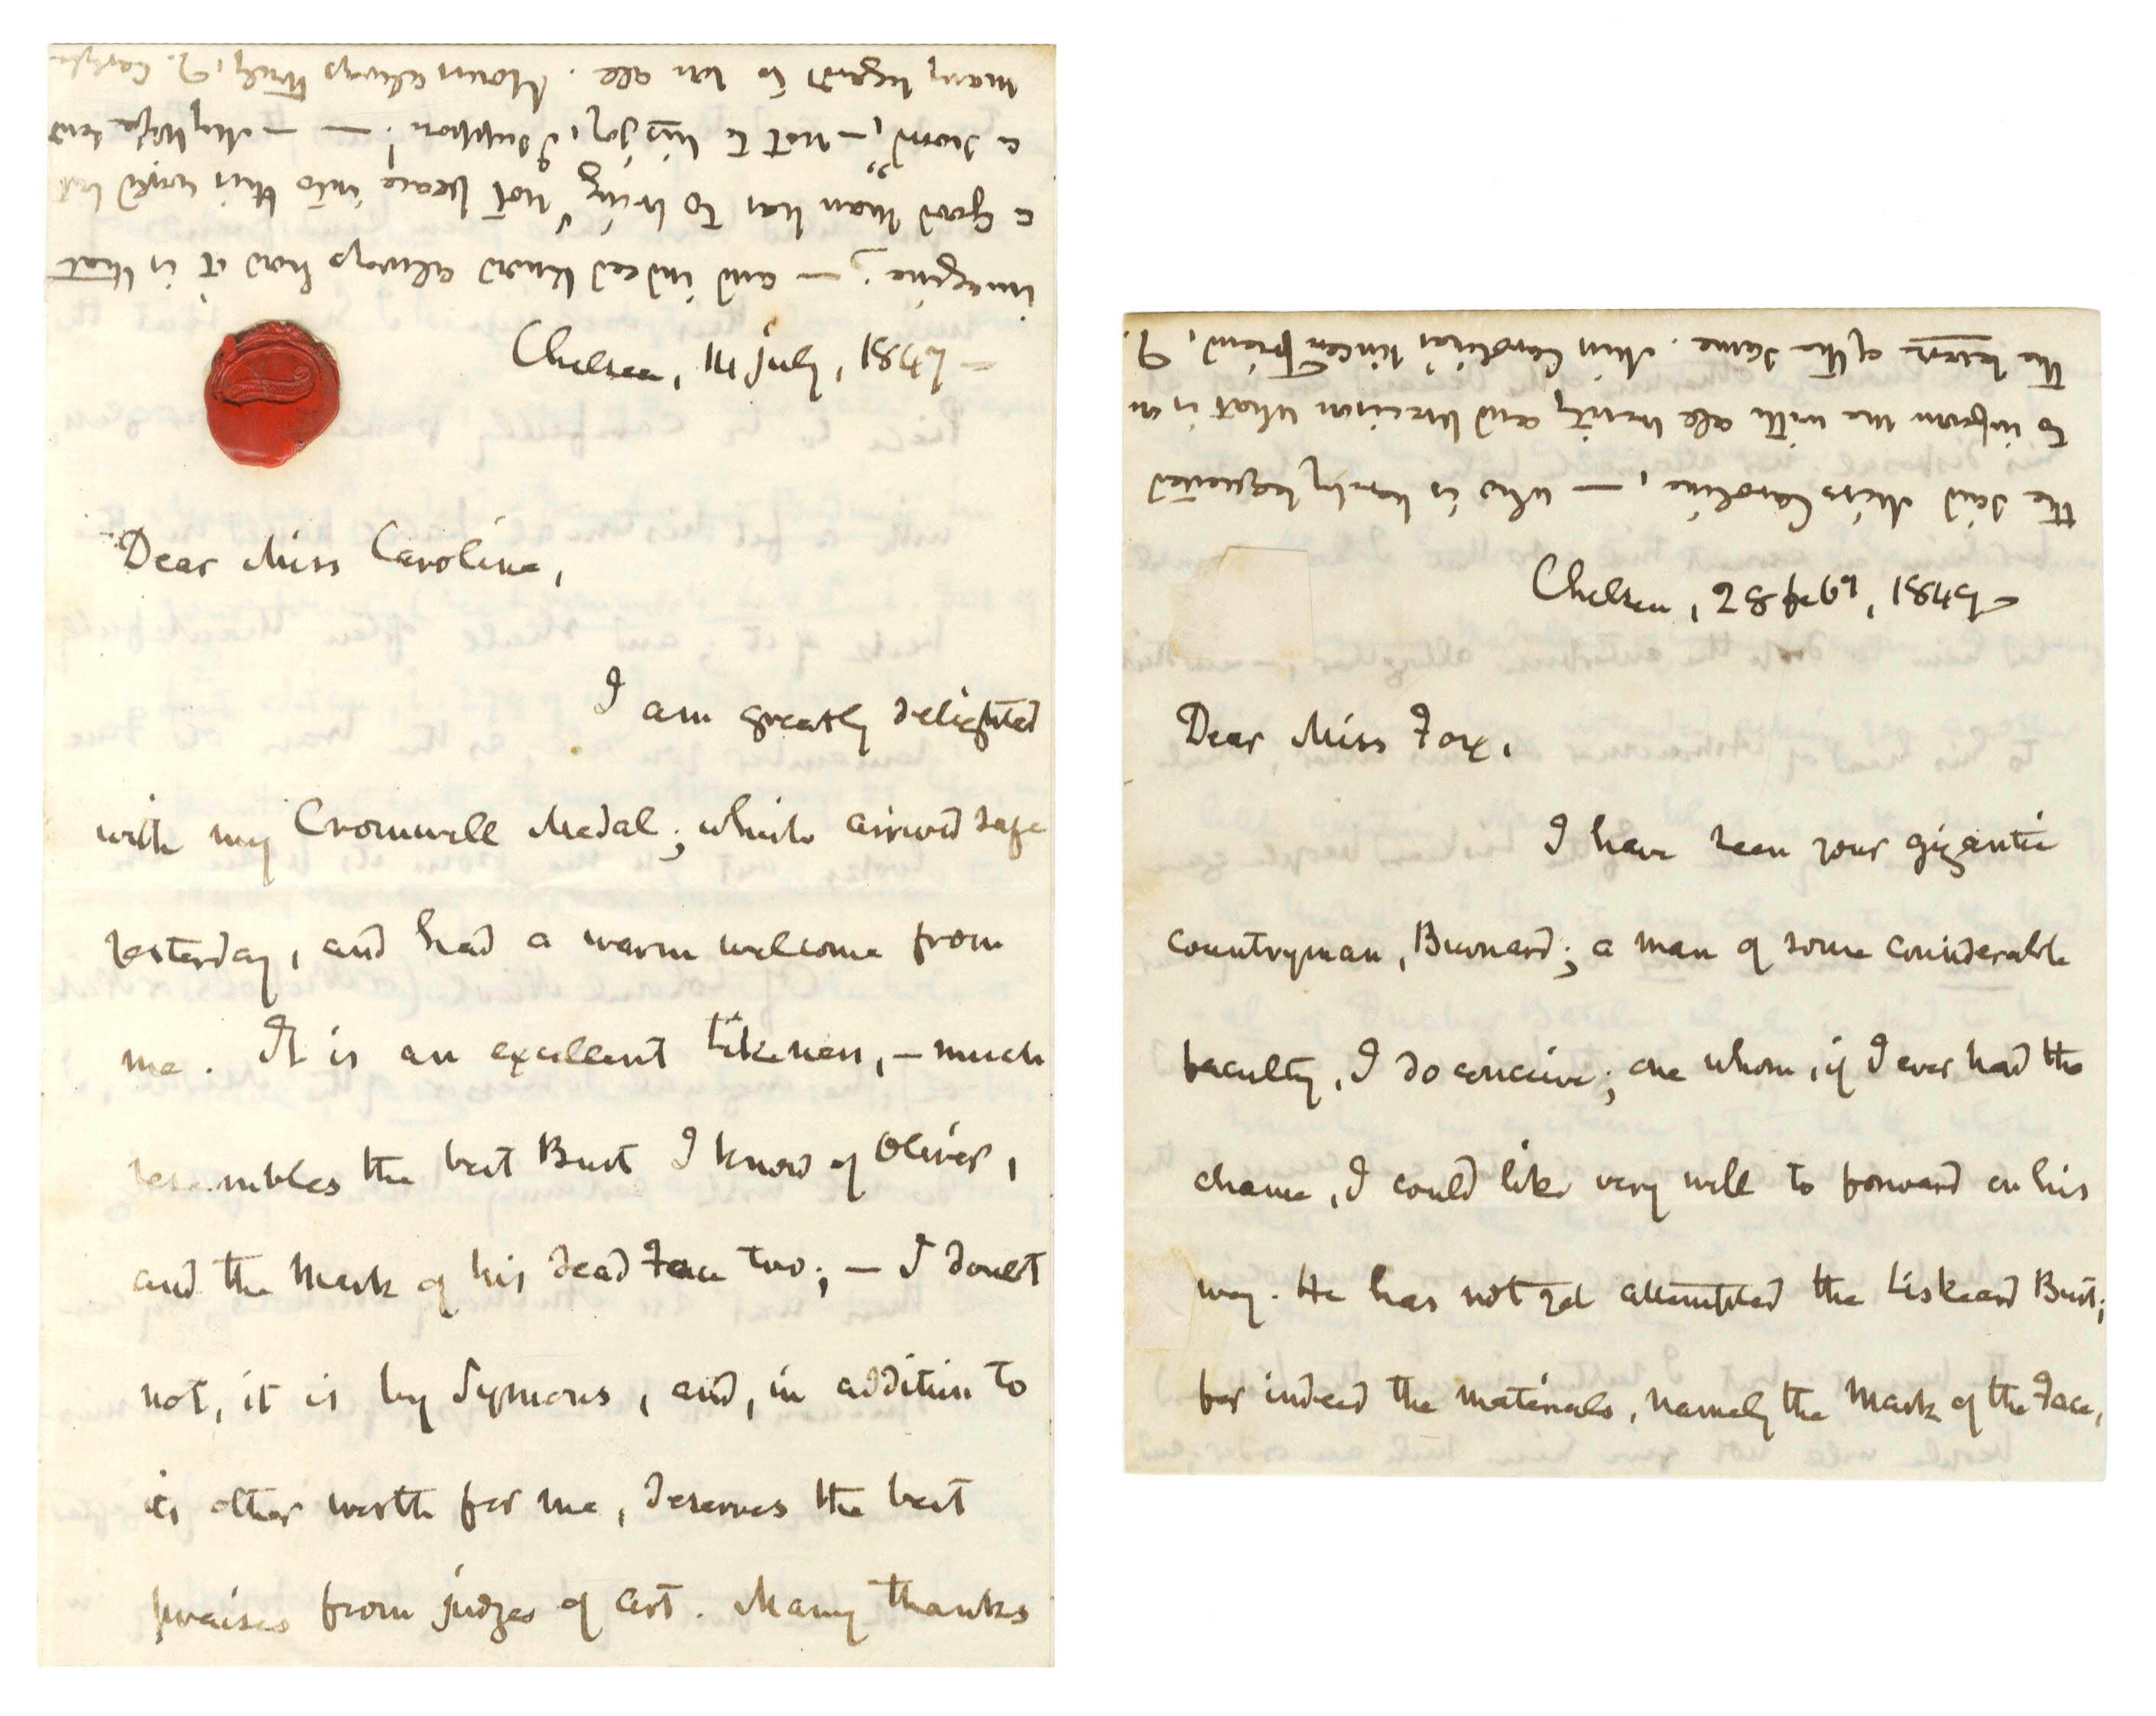 imagine; — and indeed know always how it is that
a good man has to bring “not peace into this world but
a sword,” — not to his joy, I suppose! — — My Wife send
many regards to you all. Yours always truly, T. Carlyle
Chelsea, 14 july, 1847 —
Dear Miss Caroline,
I am greatly delighted
with my Cromwell Medal; which arrived safe
yesterday, and had a warm welcome from
me. It is an excellent Likeness, — much
resembles the best Bust I know of Oliver,
and the Mask of his dead Face too; — I doubt
not, it is by Symons, and, in addition to
its other worth for me, deserves the best
praises from judges of art. Many thanks
the said Miss Caroline, — who is hereby requested
to inform me with all brevity and precision what is in
the tenor of the same. Miss Caroline's sincere friend, T.
Chelsea, 28 feby,
Dear Miss Fox,
I have seen your gigantic
countryman, Burnard; a man of some considerable
faculty, I do conceive; one whom, if I ever had the
chance, I could like very well to forward on his
way. He has not yet attempted the Liskeard Bust;
for indeed the materials, namely the Mask of the Face,